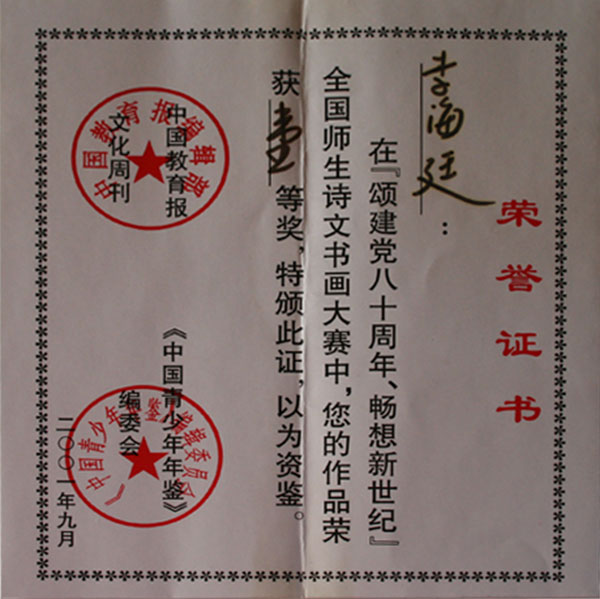 荣誉证书
李海廷：
在『颂建党八十周年、畅想新世纪』
全国师生诗文书画大赛中，您的作品荣
获壹等奖，特颁此证，以为资鉴。
中国教育报
文化周刊
中国教育报编辑部
《中国青少年年鉴》
编委会
《中国青少年年鉴》编辑委员会
二〇〇一年九月